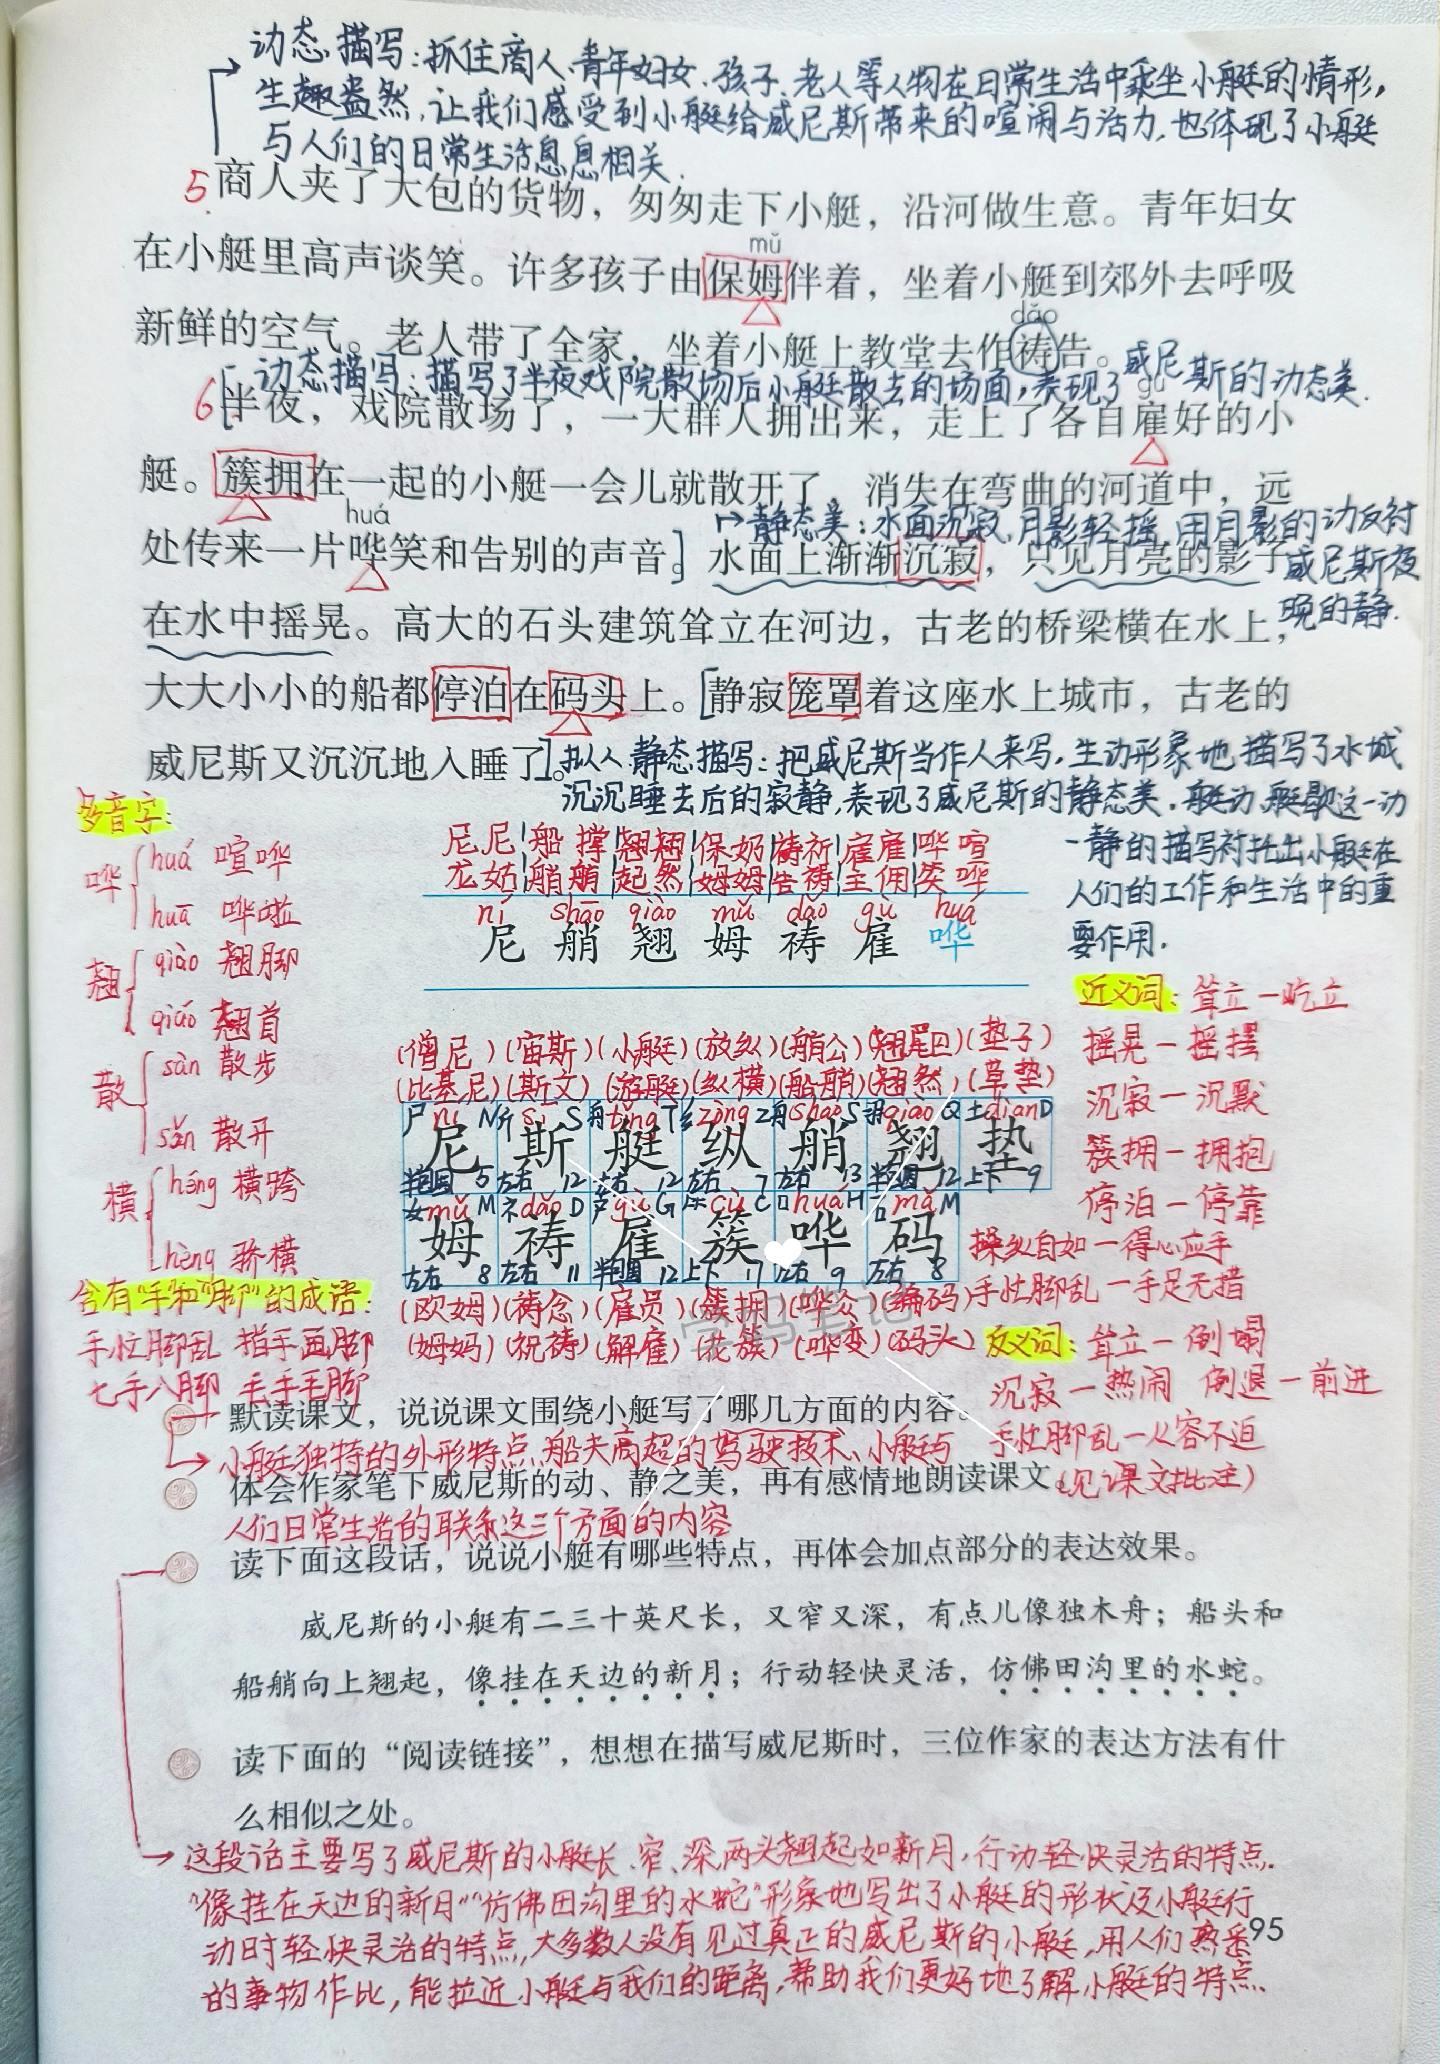 动态描写:抓住商人、青年妇女、孩子、老人等人物在日常生活中乘坐小艇的情形,
生趣盎然,让我们感受到小艇给威尼斯带来的喧闹与活力,也体现了小艇
与人们的日常生活息息相关.
5 商人夹了大包的货物，匆匆走下小艇，沿河做生意。青年妇女
mǔ
在小艇里高声谈笑。许多孩子由保姆伴着，坐着小艇到郊外去呼吸
dǎo
新鲜的空气。老人带了全家，坐着小艇上教堂去作祷告。
动态描写:描写了半夜戏院散场后小艇散去的场面,表现了威尼斯的动态美.
gù
6 半夜，戏院散场了，一大群人拥出来，走上了各自雇好的小
艇。簇拥在一起的小艇一会儿就散开了，消失在弯曲的河道中，远
huá
静态美:水面沉寂,月影轻摇,用月影的动反衬
威尼斯夜
晚的静.
处传来一片哗笑和告别的声音。水面上渐渐沉寂，只见月亮的影子
在水中摇晃。高大的石头建筑耸立在河边，古老的桥梁横在水上，
大大小小的船都停泊在码头上。[静寂笼罩着这座水上城市，古老的
威尼斯又沉沉地入睡了。]
拟人、静态描写:把威尼斯当作人来写,生动形象地描写了水城
沉沉睡去后的寂静,表现了威尼斯的静态美.艇动、艇歇这一动
一静的描写衬托出小艇在
人们的工作和生活中的重
要作用.
多音字:
哗 huá 喧哗
huā 哗啦
翘 qiào 翘脚
qiáo 翘首
散 sàn 散步
sǎn 散开
横 héng 横跨
hèng 骄横
含有"手"和"脚"的成语:
手忙脚乱 指手画脚
七手八脚 毛手毛脚
尼尼|船 撑|翘翘|保奶|祷祈|雇雇|哗 喧
龙姑|艄艄|起然|姆姆|告祷|主佣|笑 哗
ní shāo qiào mǔ dǎo gù huá
尼 艄 翘 姆 祷 雇 哗
(僧尼)(宙斯)(小艇)(放纵)(艄公)(翘尾巴)(垫子)
(比基尼)(斯文)(游艇)(纵横)(船艄)(翘然)(草垫)
尸 ní N 斤 sī S 舟 tǐng T 纟 zòng Z 舟 shāo S 羽 qiào Q 土 diàn D
尼 斯 艇 纵 艄 翘 垫
半包围 5 左右 12 左右 12 左右 7 左右 13 半包围 12 上下 9
女 mǔ M 礻 dǎo D gù G cù C 口 huá H 石 mǎ M
姆 祷 雇 簇 哗 码
左右 8 左右 11 半包围 12 上下 17 左右 9 左右 8
(欧姆)(祷念)(雇员)(簇拥)(哗众)(编码)
(姆妈)(祝祷)(解雇)(花簇)(哗变)(码头)
近义词:耸立—屹立
摇晃—摇摆
沉寂—沉默
簇拥—拥抱
停泊—停靠
操纵自如—得心应手
手忙脚乱—手足无措
反义词:耸立—倒塌
沉寂—热闹 倒退—前进
手忙脚乱—从容不迫
默读课文，说说课文围绕小艇写了哪几方面的内容。
小艇独特的外形特点、船夫高超的驾驶技术、小艇与
体会作家笔下威尼斯的动、静之美，再有感情地朗读课文。(见课文批注)
人们日常生活的联系这三个方面的内容
读下面这段话，说说小艇有哪些特点，再体会加点部分的表达效果。
威尼斯的小艇有二三十英尺长，又窄又深，有点儿像独木舟；船头和
船艄向上翘起，像挂在天边的新月；行动轻快灵活，仿佛田沟里的水蛇。
读下面的“阅读链接”，想想在描写威尼斯时，三位作家的表达方法有什
么相似之处。
这段话主要写了威尼斯的小艇长、窄、深,两头翘起如新月,行动轻快灵活的特点.
"像挂在天边的新月""仿佛田沟里的水蛇"形象地写出了小艇的形状及小艇行
动时轻快灵活的特点,大多数人没有见过真正的威尼斯的小艇,用人们熟悉
的事物作比,能拉近小艇与我们的距离,帮助我们更好地了解小艇的特点.
95